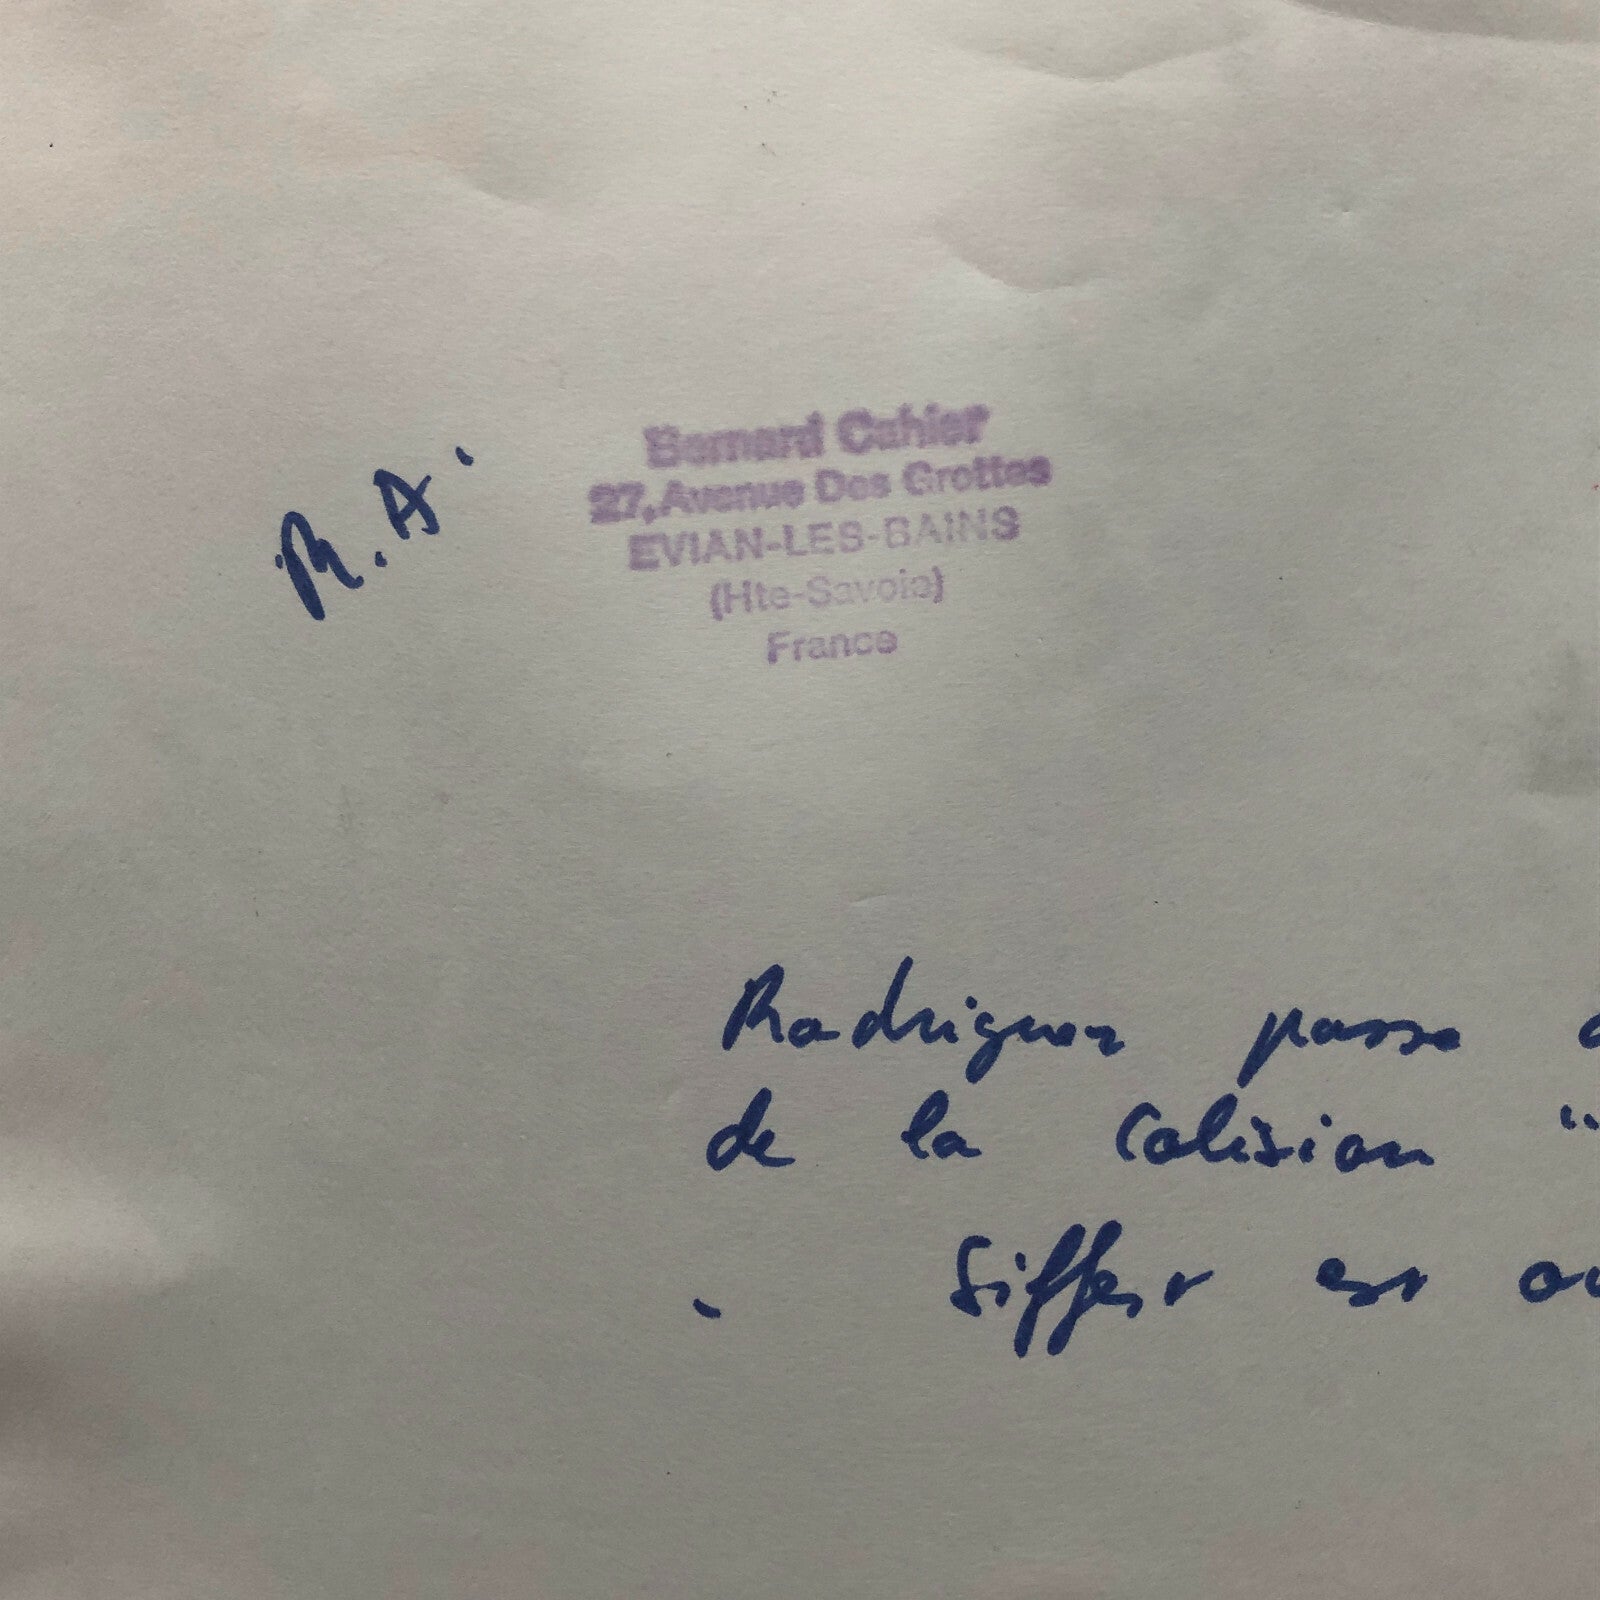 R.A.
Bernard Cahier
27, Avenue Des Grottes
EVIAN-LES-BAINS
(Hte-Savoie)
France
Rodriguez passe
de la Colision "
Siffert est